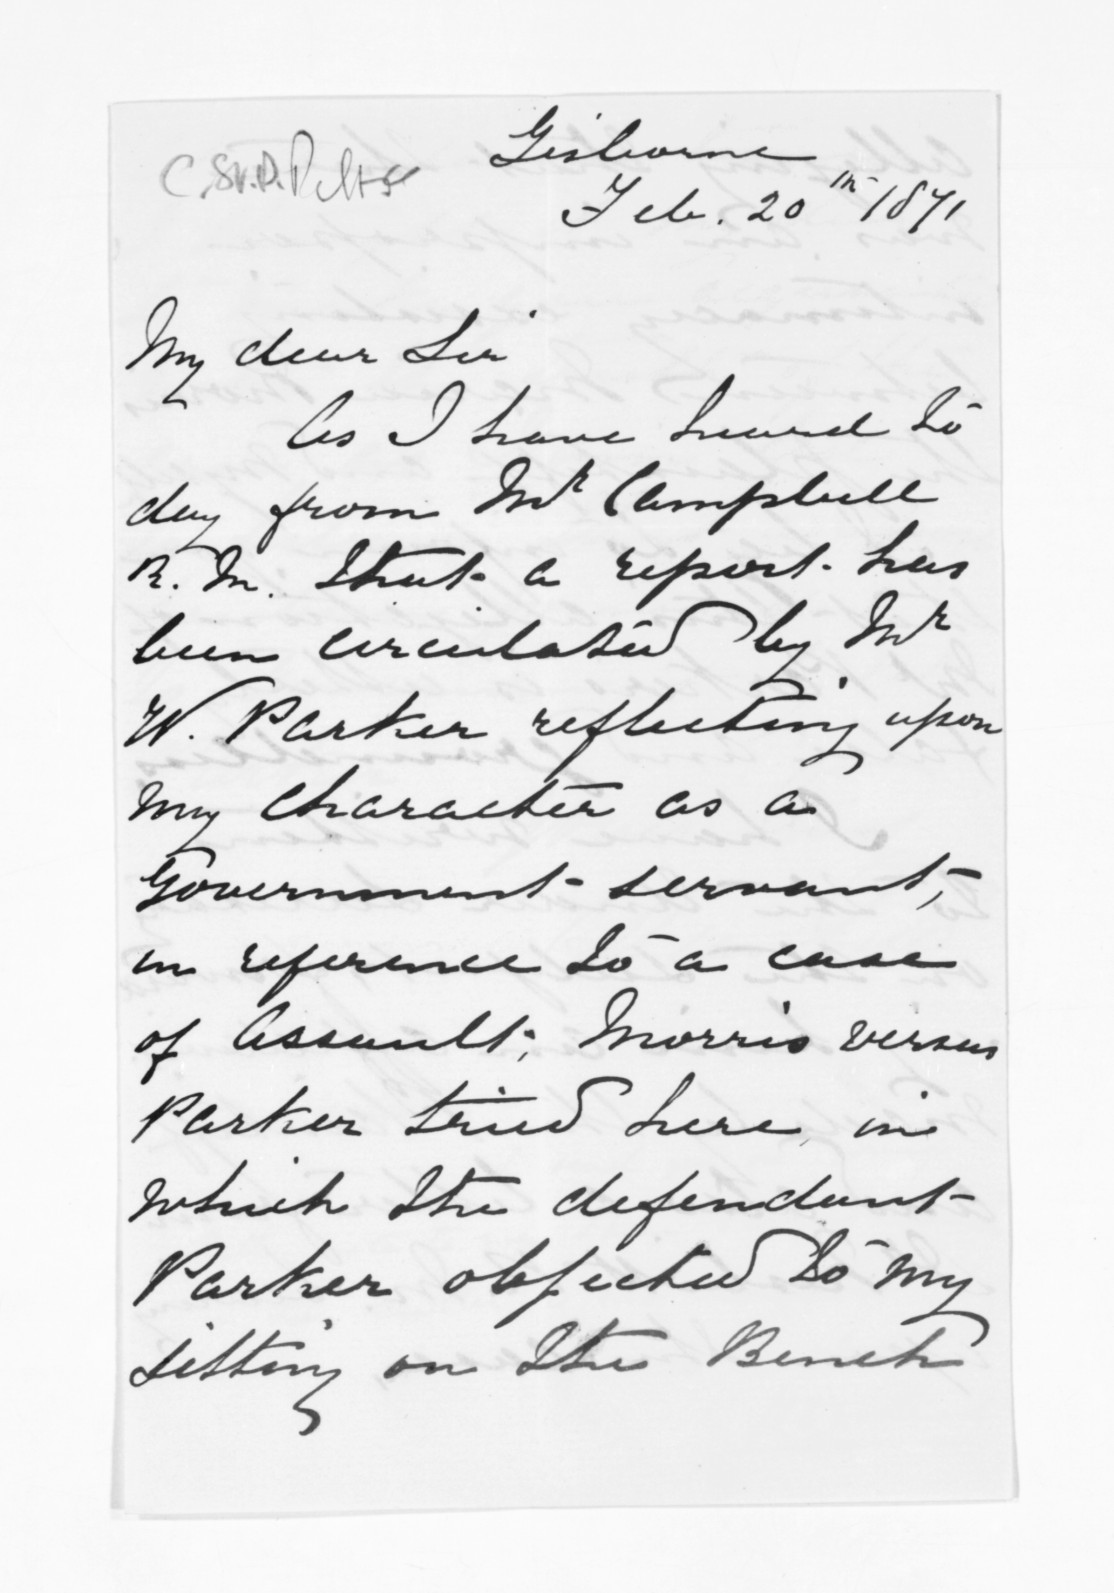 Gisborne
Feb. 20th 1871
My dear Sir
As I have heard to
day from Mr Campbell
R.M. that a report has
been circulated by Mr
W. Parker reflecting upon
my character as a
Government servant,
in reference to a case
of Assault; Morris versus
Parker tried here, in
which the defendant
Parker objected to my
sitting on the Bench